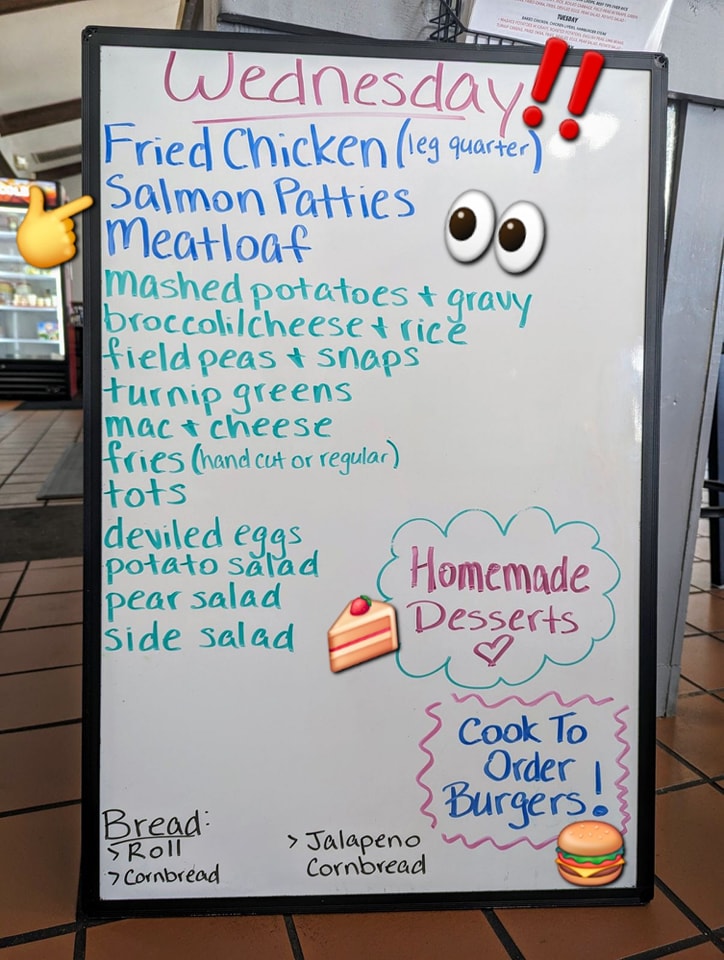 TUESDAY
Wednesday
Fried Chicken (leg quarter)
Salmon Patties
Meatloaf
mashed potatoes + gravy
broccoli/cheese + rice
field peas + snaps
turnip greens
mac + cheese
fries (hand cut or regular)
tots
deviled eggs
potato salad
pear salad
side salad
Homemade
Desserts
Cook To
Order
Burgers!
Bread:
> Roll
> Cornbread
> Jalapeno
Cornbread